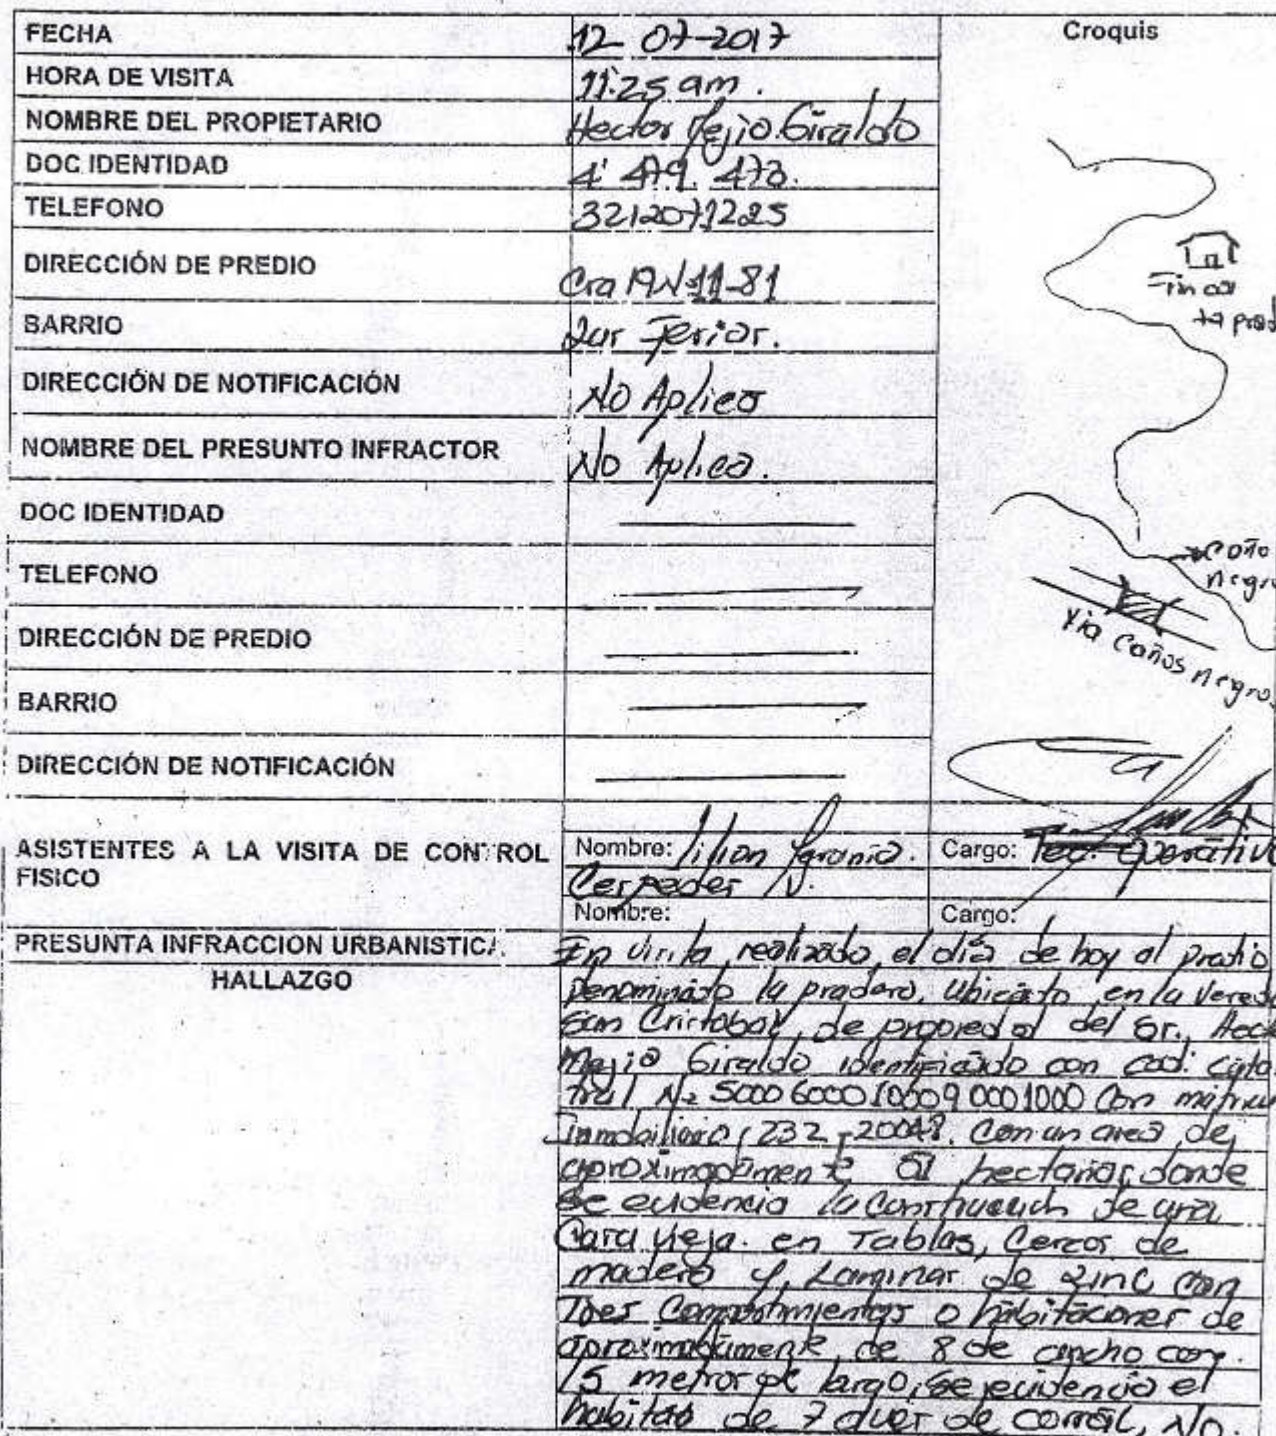 FECHA 12 07-2017
HORA DE VISITA 11:25 am.
NOMBRE DEL PROPIETARIO Hector Mejio Giraldo
DOC IDENTIDAD 4' 479. 473.
TELEFONO 3212071225
DIRECCIÓN DE PREDIO Cra 11-81
BARRIO
DIRECCIÓN DE NOTIFICACIÓN No Aplica
NOMBRE DEL PRESUNTO INFRACTOR No Aplica.
DOC IDENTIDAD
TELEFONO
DIRECCIÓN DE PREDIO
BARRIO
DIRECCIÓN DE NOTIFICACIÓN
Croquis
Finca
la prad
caño
negro
Via Caños negros
ASISTENTES A LA VISITA DE CONTROL
FISICO
Nombre: Lilian Cargo: Tec. Operativo
Nombre: Cargo:
PRESUNTA INFRACCION URBANISTICA
HALLAZGO
En visita realizada, el día de hoy al predio
Denominado la pradera, Ubicado en la Vereda
San Cristobal, de propiedad del Sr.,
Mejia Giraldo identificado con cod: cata
tral No 50006000100090001000 con matricu
Inmobiliaria con un area de
aproximadamente hectarias donde
se evidencia la construccion de una
Casa vieja. en Tablas, Cercos de
madera y Laminas de zinc con
Tres Compartimientos o habitaciones de
aproximadamente de 8 de ancho con
15 metros de largo, se evidencia el
habitad de 7 aves de corral, No.